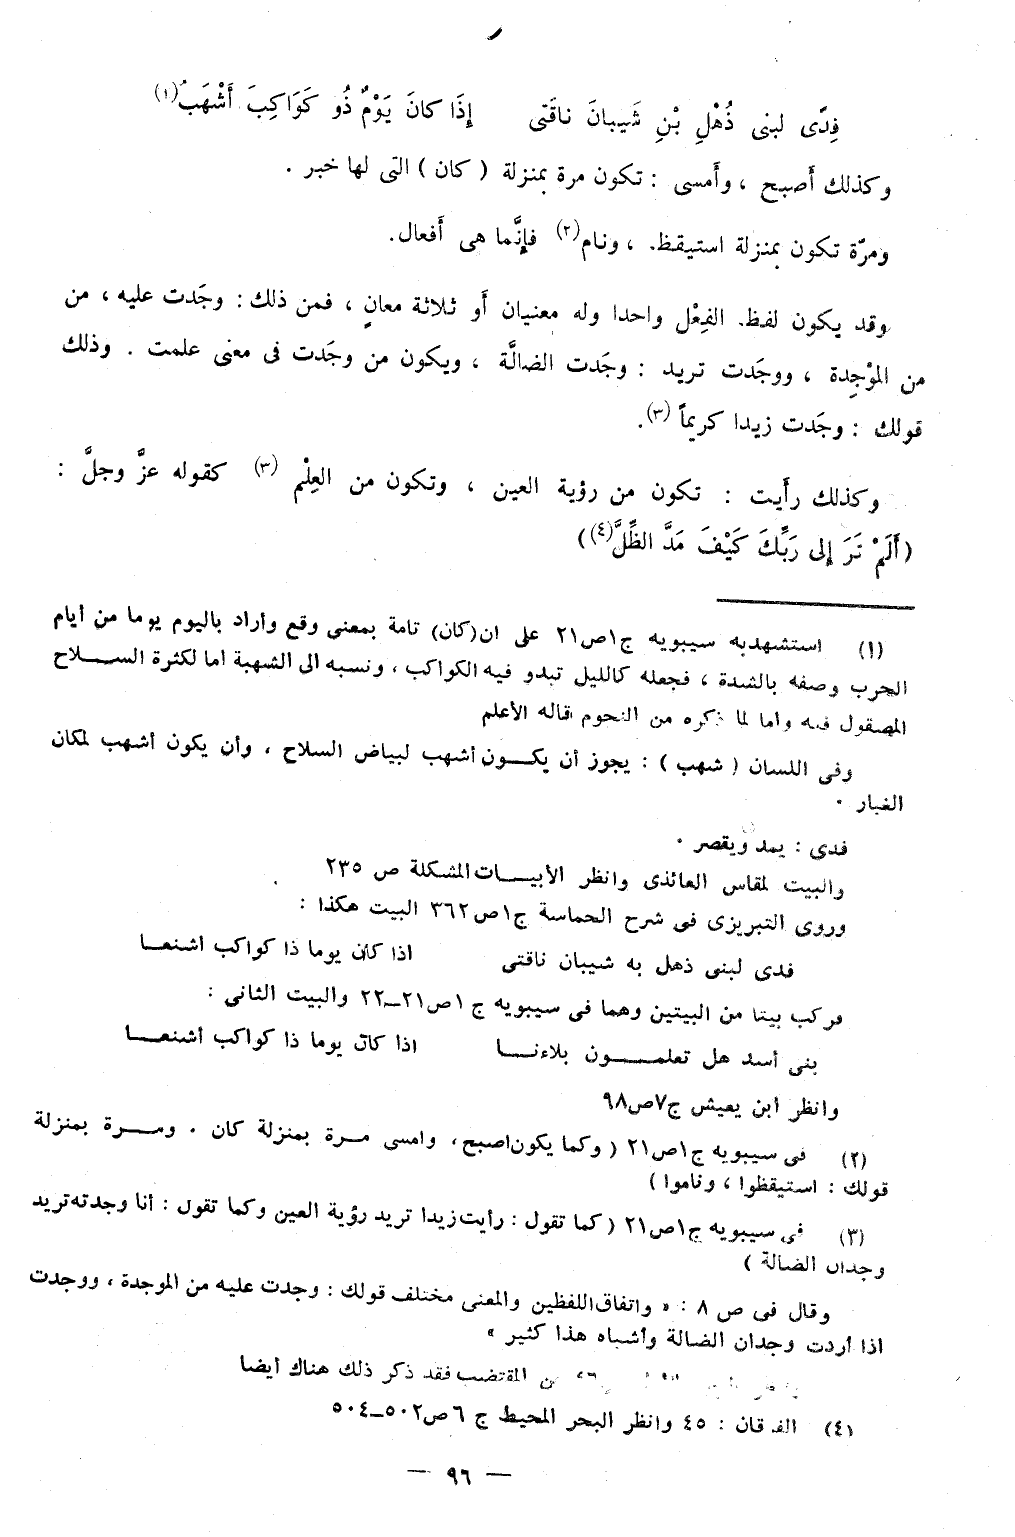 فِدًى لبنى ذُهْلِ بْنِ شَيبانَ ناقَتى إِذَا كانَ يَوْمٌ ذُو كَوَاكِبَ أَشْهَبُ(١)
وكذلك أَصبح ، وأَمسى : تكون مرة بمنزلة ( كان ) التى لها خبر .
ومرّة تكون بمنزلة استيقظ. ، ونام(٢) فإِنَّما هى أَفعال.
وقد يكون لفظ. الفِعْل واحدا وله معنيان أَو ثلاثة معانٍ ، فمن ذلك : وجَدت عليه ، من
من المَوْجِدة ، ووجَدت تريد : وجَدت الضالَّة ، ويكون من وجَدت فى معنى علمت . وذلك
قولك : وجَدت زيدا كريماً (٣).
وكذلك رأَيت : تكون من رؤية العين ، وتكون من العِلْم (٣) كقوله عزَّ وجلَّ :
(أَلَمْ تَرَ إِلى رَبِّكَ كَيْفَ مَدَّ الظِّلَّ(٤))
(١) استشهدبه سيبويه ج١ص٢١ على ان (كان) تامة بمعنى وقع وأراد باليوم يوما من أيام
الحرب وصفه بالشدة ، فجعله كالليل تبدو فيه الكواكب ، ونسبه الى الشهبة اما لكثرة الســـلاح
المصقول فيه واما لما ذكره من النجوم قاله الأعلم
وفى اللسان ( شهب ) : يجوز أن يكـــون أشهب لبياض السلاح ، وأن يكون أشهب لمكان
الغبار .
فدى : يمد ويقصر .
والبيت لمقاس العائذى وانظر الأبيـــات المشكلة ص ٢٣٥
وروى التبريزى فى شرح الحماسة ج١ص٣٦٢ البيت هكذا :
فدى لبنى ذهل به شيبان ناقتى اذا كان يوما ذا كواكب أشنعـــا
فركب بيتا من البيتين وهما فى سيبويه ج ١ص٢١ــ٢٢ والبيت الثانى :
بنى أسد هل تعلمـــــون بلاءنـــا اذا كان يوما ذا كواكب أشنعـــا
وانظر ابن يعيش ج٧ص٩٨
(٢) فى سيبويه ج١ص٢١ ( وكما يكون اصبح ، وامسى مــرة بمنزلة كان . ومـــرة بمنزلة
قولك : استيقظوا ، وناموا )
(٣) فى سيبويه ج١ص٢١ ( كما تقول : رأيت زيدا تريد رؤية العين وكما تقول : أنا وجدته تريد
وجدان الضالة )
وقال فى ص ٨ : « واتفاق اللفظين والمعنى مختلف قولك : وجدت عليه من الموجدة ، ووجدت
اذا أردت وجدان الضالة وأشباه هذا كثير »
المقتضب فقد ذكر ذلك هناك أيضا
(٤) الفرقان : ٤٥ وانظر البحر المحيط ج ٦ص٥٠٢ــ٥٠٤
— ٩٦ —